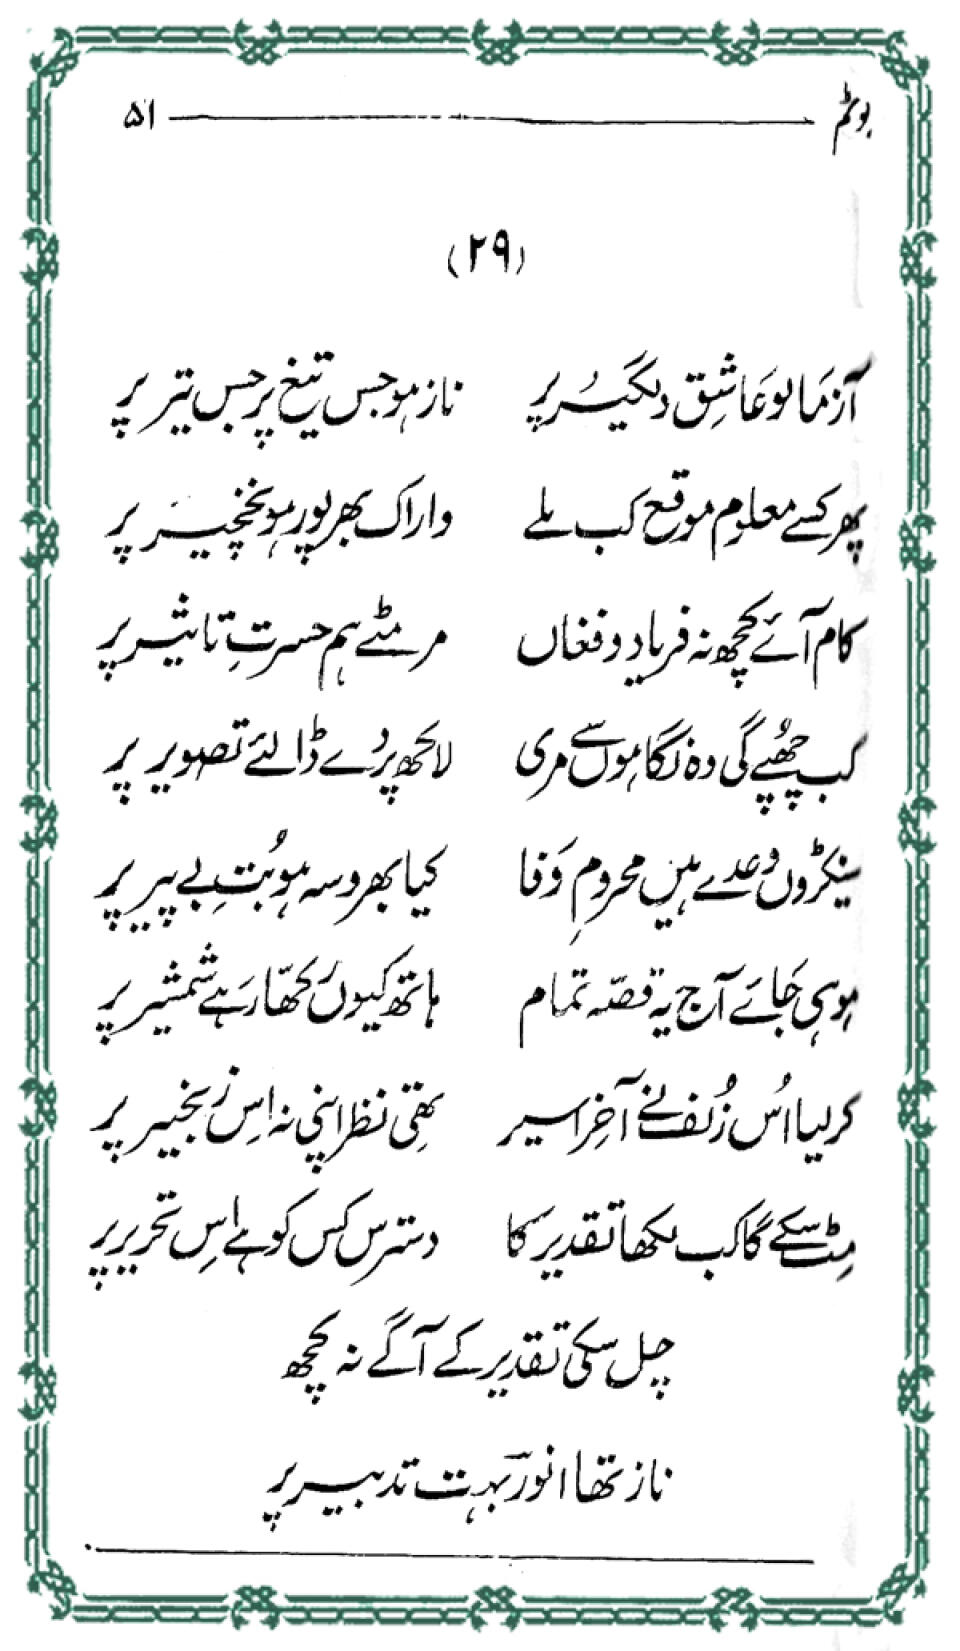 بوٹم ۵۱
(۲۹)
آزما لو عاشقِ دلگیر پر ناز ہو جس تیغ پر جس تیر پر
پھر کسے معلوم موقع کب ملے وار اک بھرپور ہو نخچیر پر
کام آئے کچھ نہ فریاد و فغاں مر مٹے ہم حسرتِ تاثیر پر
کب چھُپے گی وہ نگاہوں سے مری لاکھ پردے ڈالئے تصویر پر
سینکڑوں وعدے ہیں محرومِ وَفا کیا بھروسہ ہو بُتِ بے پیر پر
ہو ہی جائے آج یہ قصّہ تمام ہاتھ کیوں رکھّا رہے شمشیر پر
کر لیا اُس زُلف نے آخر اسیر تھی نظر اپنی نہ اس زنجیر پر
مِٹ سکے گا کب لکھا تقدیر کا دسترس کس کو ہے اِس تحریر پر
چل سکی تقدیر کے آگے نہ کچھ
ناز تھا انورؔ بہت تدبیر پر